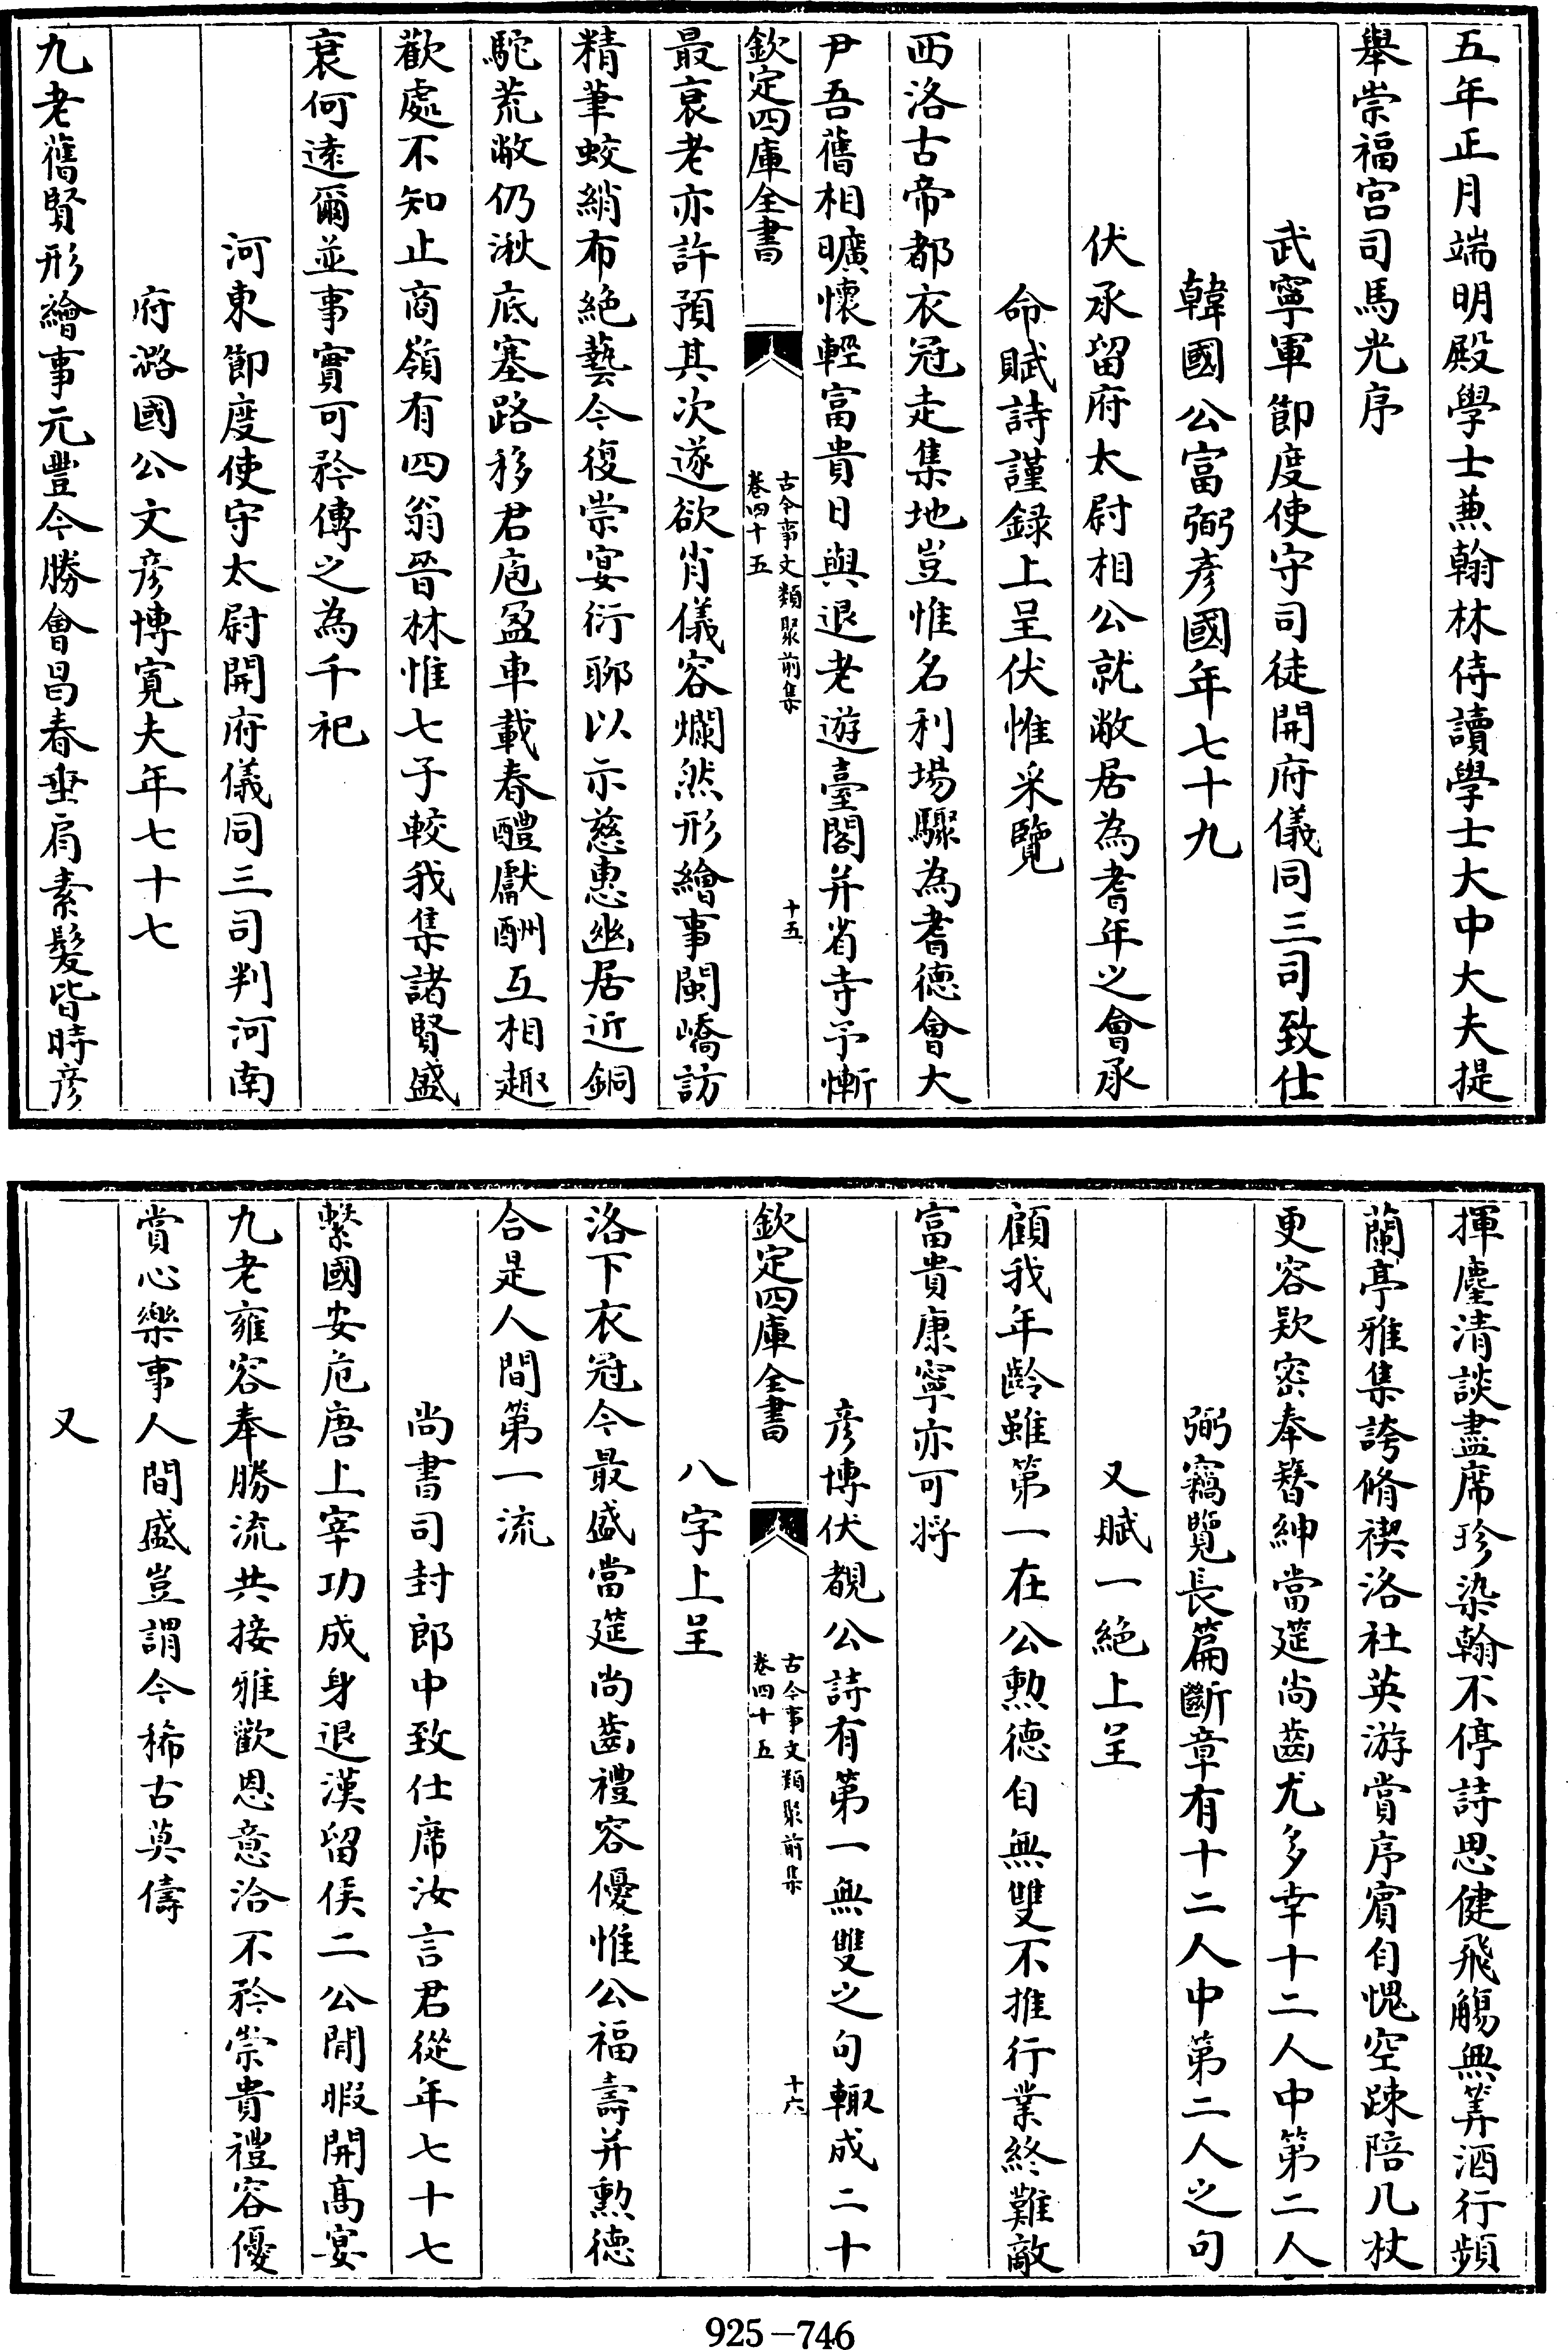 五年正月端明殿學士兼翰林侍讀學士大中大夫提
舉崇福宮司馬光序
武寧軍節度使守司徒開府儀同三司致仕
韓國公富弼彥國年七十九
伏承留府太尉相公就敝居為耆年之會承
命賦詩謹録上呈伏惟采覽
西洛古帝都衣冠走集地豈惟名利場驟為耆德會大
尹吾舊相曠懷輕富貴日與退老遊臺閣并省寺予慚
欽定四庫全書
古今事文類聚前集
卷四十五
十五
最衰老亦許預其次遂欲肖儀容爛然形繪事閩嶠訪
精筆蛟綃布絕藝今復崇宴衍聊以示慈惠幽居近銅
駝荒敝仍湫底塞路移君庖盈車載春醴獻酬互相趣
歡處不知止商嶺有四翁晉林惟七子較我集諸賢盛
衰何遠爾並事實可矜傳之為千祀
河東節度使守太尉開府儀同三司判河南
府潞國公文彥博寬夫年七十七
九老舊賢形繪事元豐今勝會昌春垂肩素髮皆時彥
揮麈清談盡席珍染翰不停詩思健飛觴無筭酒行頻
蘭亭雅集誇脩禊洛社英游賞序賓自愧空疎陪几杖
更容款密奉簪紳當筵尚齒尤多幸十二人中第二人
弼竊覽長篇斷章有十二人中第二人之句
又賦一絕上呈
顧我年齡雖第一在公勲德自無雙不推行業終難敵
富貴康寧亦可將
彥博伏覩公詩有第一無雙之句輙成二十
欽定四庫全書
古今事文類聚前集
卷四十五
十六
八字上呈
洛下衣冠今最盛當筵尚齒禮容優惟公福壽并勲德
合是人間第一流
尚書司封郎中致仕席汝言君從年七十七
繫國安危唐上宰功成身退漢留侯二公閒暇開高宴
九老雍容奉勝流共接雅歡恩意洽不矜崇貴禮容優
賞心樂事人間盛豈謂今稀古莫儔
又
925-746